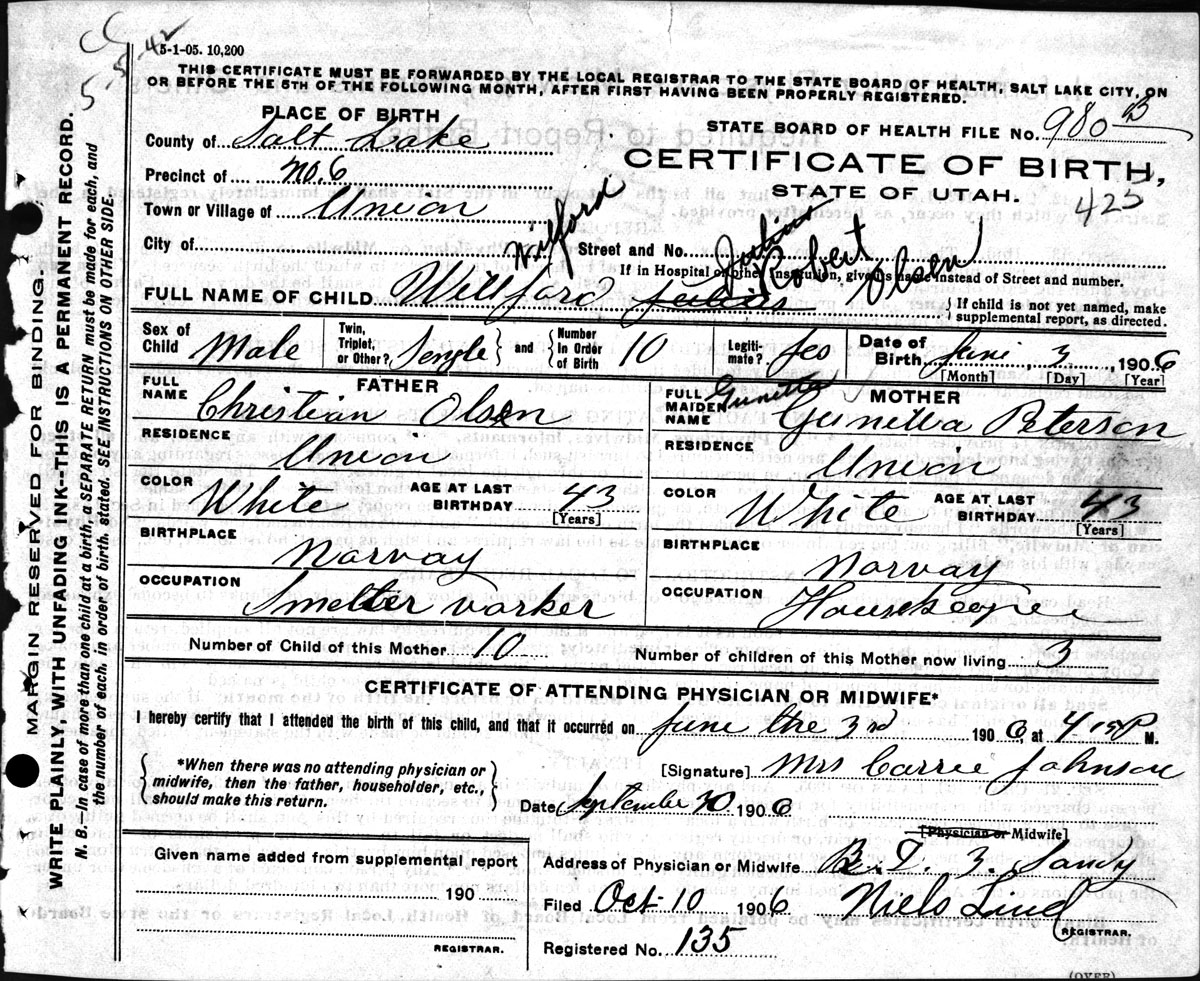 5-5-42
5-1-05. 10,200
THIS CERTIFICATE MUST BE FORWARDED BY THE LOCAL REGISTRAR TO THE STATE BOARD OF HEALTH, SALT LAKE CITY, ON
OR BEFORE THE 5TH OF THE FOLLOWING MONTH, AFTER FIRST HAVING BEEN PROPERLY REGISTERED.
MARGIN RESERVED FOR BINDING.
WRITE PLAINLY, WITH UNFADING INK--THIS IS A PERMANENT RECORD.
N. B. In case of more than one child at a birth, a SEPARATE RETURN must be made for each, and
the number of each, in order of birth, stated. SEE INSTRUCTIONS ON OTHER SIDE.
PLACE OF BIRTH
STATE BOARD OF HEALTH FILE No. 980 B
County of Salt Lake
CERTIFICATE OF BIRTH,
Precinct of No. 6
STATE OF UTAH.
423
Town or Village of Union
City of
Street and No.
If in Hospital or other Institution, give its name instead of Street and number.
Wilford Joshua Robert
FULL NAME OF CHILD Willford Olsen
{If child is not yet named, make
supplemental report, as directed.
Sex of Child Male
Twin, Triplet, or Other? Sengle } and { Number In Order of Birth 10
Legiti-mate? Jes
Date of Birth Juni 3 1906
[Month] [Day] [Year]
FATHER
FULL NAME Christian Olsen
RESIDENCE Union
COLOR White AGE AT LAST BIRTHDAY 43 [Years]
BIRTHPLACE Norvay
OCCUPATION Smelter vorker
MOTHER
Gunetta
FULL MAIDEN NAME Gunetta Peterson
RESIDENCE Union
COLOR White AGE AT LAST BIRTHDAY 43 [Years]
BIRTHPLACE Norvay
OCCUPATION Houskeeper
Number of Child of this Mother 10 Number of children of this Mother now living 3
CERTIFICATE OF ATTENDING PHYSICIAN OR MIDWIFE*
I hereby certify that I attended the birth of this child, and that it occurred on June the 3rd 1906, at 4 15 P M.
{ *When there was no attending physician or
midwife, then the father, householder, etc.,
should make this return. }
[Signature] Mrs Carrie Johnson
Date September 20 1906
[Physician or Midwife]
Given name added from supplemental report
190
REGISTRAR.
Address of Physician or Midwife Sandy
Filed Oct-10 1906 Niels Lind
REGISTRAR.
Registered No. 135
(OVER)